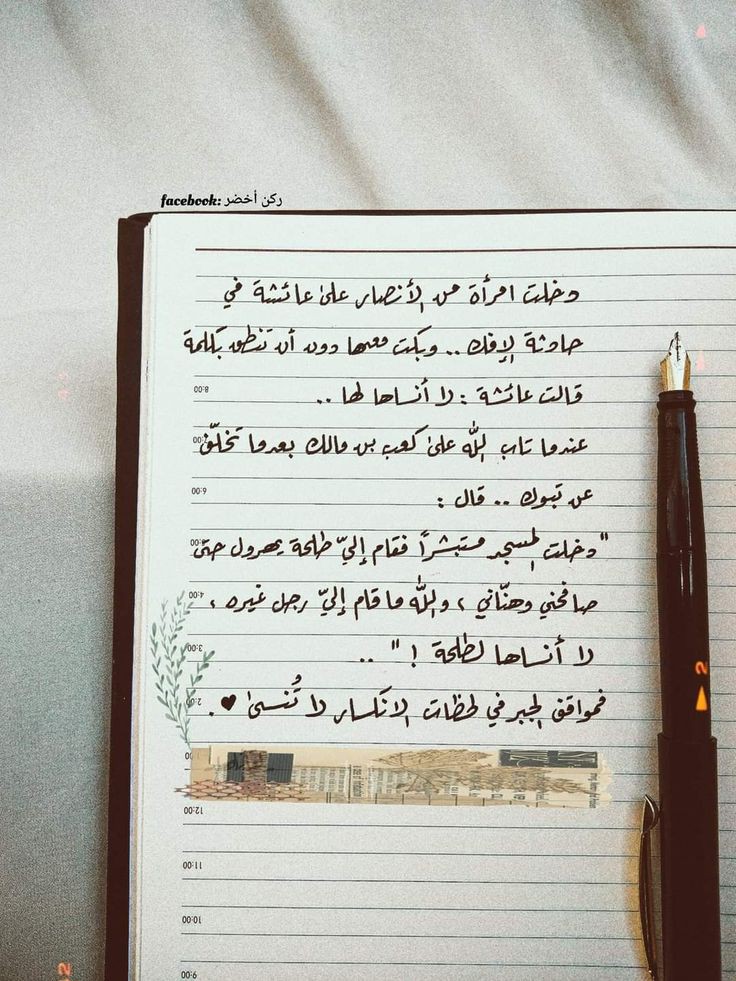 facebook: ركن أخضر
دخلت امرأة من الأنصار على عائشة في
حادثة الإفك .. وبكت معها دون أن تنطق بكلمة
قالت عائشة : لا أنساها لها ..
8:00
عندما تاب الله على كعب بن مالك بعدما تخلّف
عن تبوك .. قال :
6:00
"دخلت المسجد مستبشراً فقام إليّ طلحة يهرول حتى
صافحني وهنّأني ، والله ما قام إليّ رجل غيره ،
4:00
لا أنساها لطلحة ! " ..
3:00
فمواقف الجبر في لحظات الانكسار لا تُنسى ♥ .
2:00
12:00
11:00
10:00
9:00